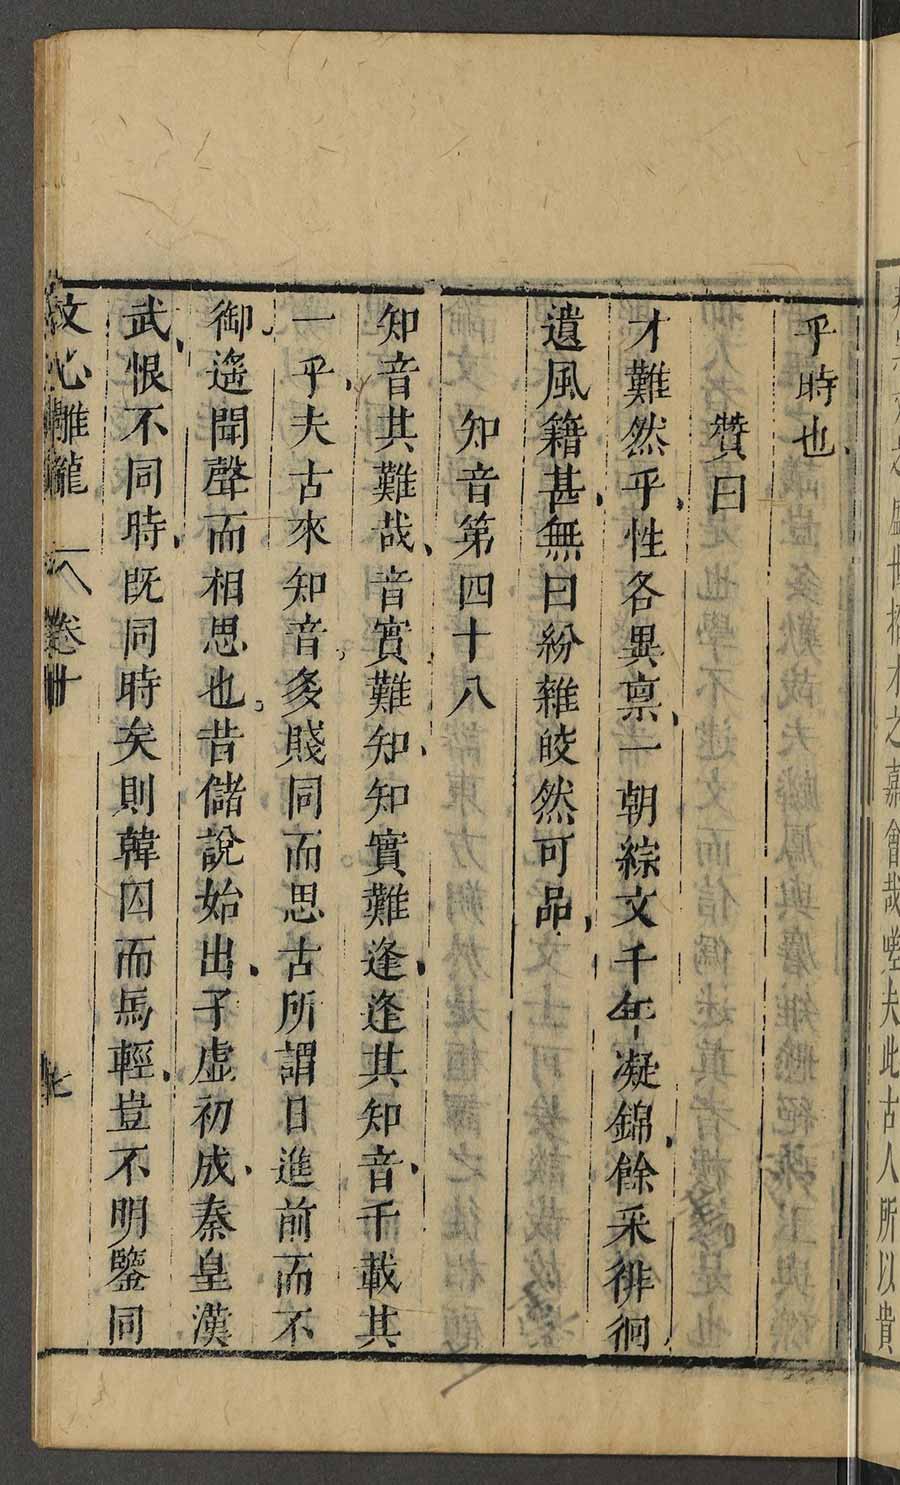 乎時也
贊曰
才難然乎性各異禀一朝綜文千年凝錦餘采徘徊
遺風籍甚無曰紛雜皎然可品
知音第四十八
知音其難哉音實難知知實難逢逢其知音千載其
一乎夫古來知音多賤同而思古所謂日進前而不
御遙聞聲而相思也昔儲說始出子虛初成秦皇漢
武恨不同時既同時矣則韓囚而馬輕豈不明鑒同
文心雕龍 卷十 七
之盛世樹木之嘉會哉嗟夫此古人所以貴